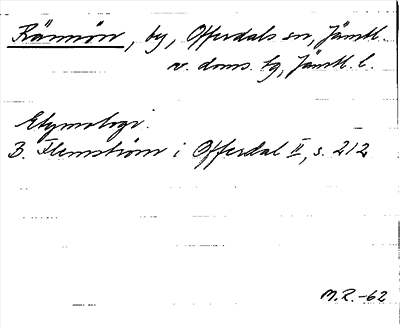 Rännön, by, Offerdals sn, Jämtl.
v. doms. tg, Jämtl. l.
Etymologi.
B. Flemström i Offerdal II, s. 212
M.R.-62